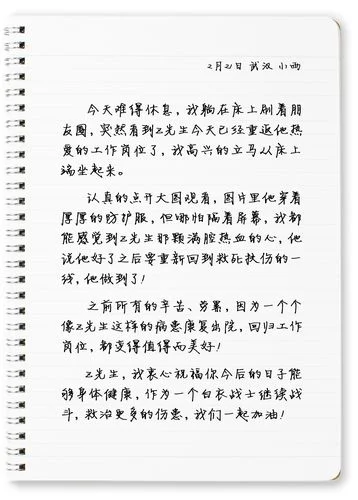 2月21日 武汉 小西
今天难得休息，我躺在床上刷着朋
友圈，突然看到Z先生今天已经重返他热
爱的工作岗位了，我高兴的立马从床上
端坐起来。
认真的点开大图观看，图片里他穿着
厚厚的防护服，但哪怕隔着屏幕，我都
能感觉到Z先生那颗满腔热血的心，他
说他好了之后要重新回到救死扶伤的一
线，他做到了！
之前所有的辛苦、劳累，因为一个个
像Z先生这样的病患康复出院，回归工作
岗位，都变得值得而美好！
Z先生，我衷心祝福你今后的日子能
够身体健康，作为一个白衣战士继续战
斗，救治更多的伤患，我们一起加油！